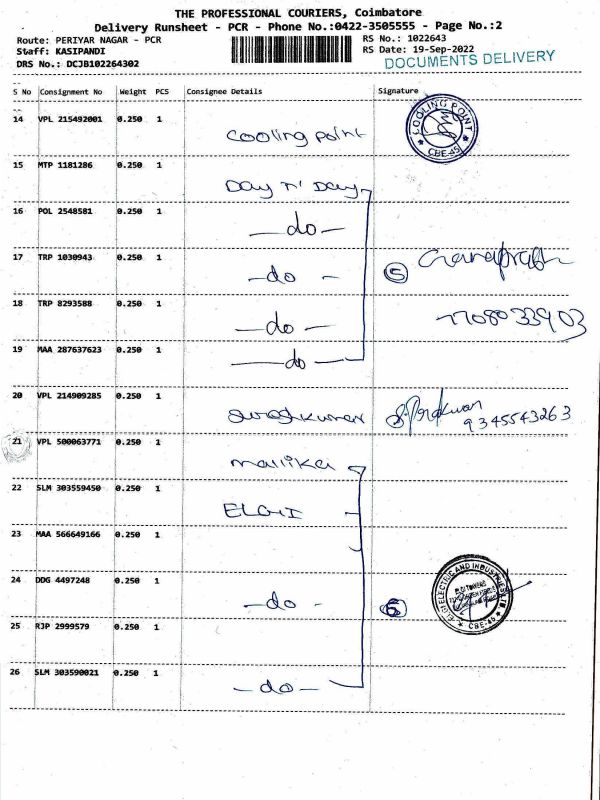 THE PROFESSIONAL COURIERS, Coimbatore
Delivery Runsheet - PCR - Phone No.:0422-3505555 - Page No.:2
Route: PERIYAR NAGAR - PCR RS No.: 1022643
Staff: KASIPANDI RS Date: 19-Sep-2022
DRS No.: DCJB102264302 DOCUMENTS DELIVERY
S No Consignment No Weight PCS Consignee Details Signature
14 VPL 215492001 0.250 1 Cooling point COOLING POINT * CBE-45 *
15 MTP 1181286 0.250 1 Day n' Day
16 POL 2548581 0.250 1 —do—
17 TRP 1030943 0.250 1 —do— 5
18 TRP 8293588 0.250 1 —do— 7708033903
19 MAA 287637623 0.250 1 —do—
20 VPL 214909285 0.250 1 Sureshkumar 9345543263
21 VPL 500063771 0.250 1 Mallika
22 SLM 303559450 0.250 1 ELGI
23 MAA 566649166 0.250 1
24 DDG 4497248 0.250 1 —do— 6 ELGI ELECTRIC AND INDUSTRIES LTD * CBE-45 *
25 RJP 2999579 0.250 1
26 SLM 303590021 0.250 1 —do—